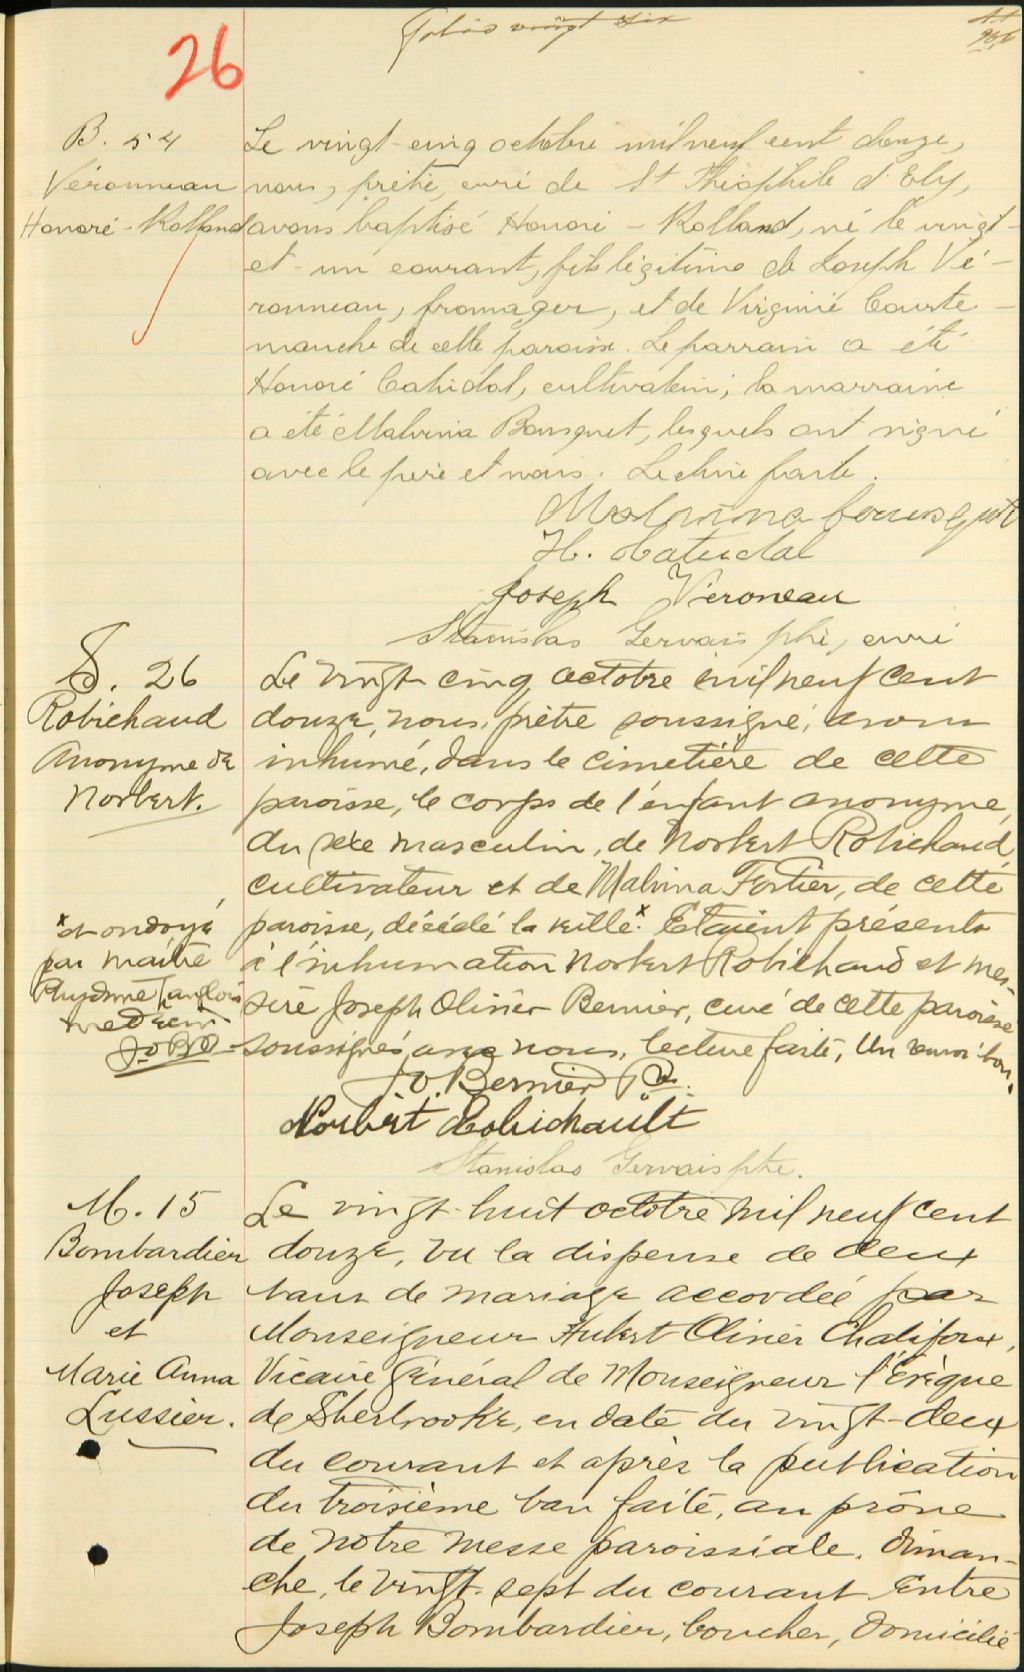 Folio vingt six
26
B. 54
Véronneau
Honoré-Rolland
Le vingt-cinq octobre mil neuf cent douze,
nous, prêtre, curé de St Théophile d'Ely,
avons baptisé Honoré-Rolland, né le vingt-
et-un courant, fils légitime de Joseph Vé-
ronneau, fromager, et de Virginie Courte-
manche de cette paroisse. Le parrain a été
Honoré Catudal, cultivateur; la marraine
a été Malvina Bousquet, lesquels ont signé
avec le père et nous. Lecture faite.
Malvina bousquet
H. Catudal
Joseph Véroneau
Stanislas Gervais ptre, curé
S. 26
Robichaud
Anonyme de
Norbert.
Le vingt-cinq octobre mil neuf cent
douze, nous, prêtre soussigné, avons
inhumé, dans le cimetière de cette
paroisse, le corps de l'enfant anonyme,
du sexe masculin, de Norbert Robichaud,
cultivateur et de Malvina Fortier, de cette
paroisse, décédé la veille.x Etaient présents
à l'inhumation Norbert Robichaud et mes-
sire Joseph Olivier Bernier, curé de cette paroisse
soussignés, avec nous, lecture faite, Un renvoi bon.
x et ondoyé
par maître
Langlois
médecin
J.O.B.
J.O. Bernier Ptre.
Norbert Robichault
Stanislas Gervais ptre.
M. 15
Bombardier
Joseph
et
Marie Anna
Lussier.
Le vingt-huit octobre mil neuf cent
douze, vu la dispense de deux
bans de mariage accordée par
Monseigneur Hubert Olivier Chalifoux,
Vicaire Général de Monseigneur l'Évêque
de Sherbrooke, en date du vingt-deux
du courant et après la publication
du troisième ban faite, au prône
de notre messe paroissiale, diman-
che, le vingt-sept du courant Entre
Joseph Bombardier, boucher, domicilié